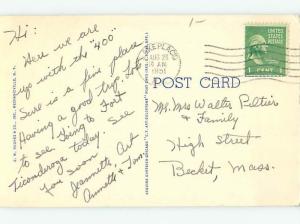 1-
Hi:
Here we are
up with the "400"
Sure is a fine place
Having a good trip. Lots
to see. Going to Fort
Ticonderoga today. See
you soon. Art
Jeannette & Tom
LAKE PLACID
AUG 25
AM
1951
1 CENT
POST CARD
Mr. Mrs Walter Peltier
& Family
High Street
Becket, Mass.